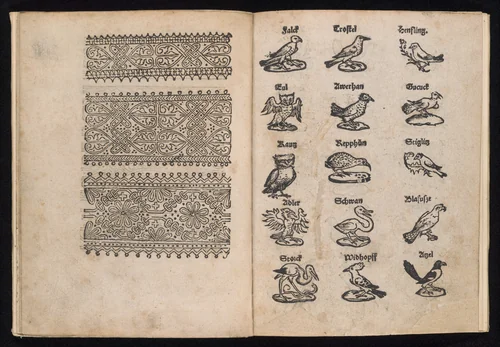 Falck Troskel Henfling.
Eul Awerhan Guguck
Kautz Repphůn Stiglitz
Adler Schwan Blafusze
Storck Widhopff Atzel